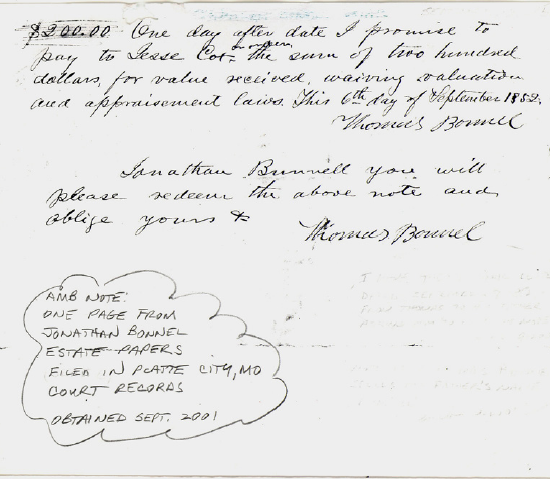 $200.00 One day after date I promise to
pay to Jesse Cox or order the sum of two hundred
dollars, for value received, waiving valuation
and appraisement laws. This 6th day of September 1852.
Thomas Bonnel
Jonathan Bunnell you will
please redeem the above note and
oblige yours &
Thomas Bonnel
AMB NOTE:
ONE PAGE FROM
JONATHAN BONNEL
ESTATE PAPERS
FILED IN PLATTE CITY, MO
COURT RECORDS
OBTAINED SEPT. 2001